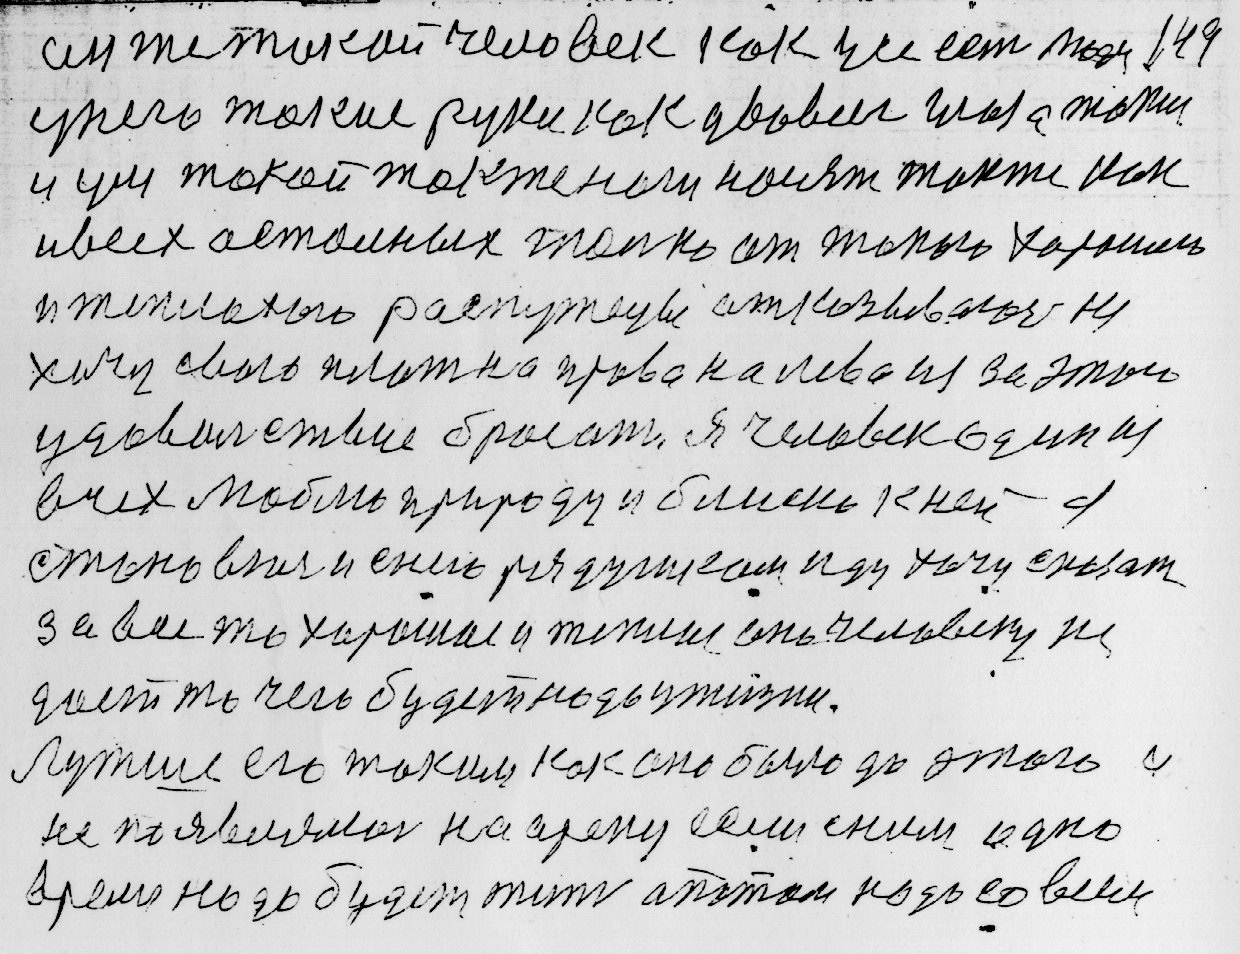 он же такой человек как и все есть люди 149
у него такие руки как и у всех глаза также
и ум такой также ноги носят также как
и всех остольных только от такого хорошего
и теплого распужеция отказываюсь ни
хочу своего плотна права налева из за этого
удовольствие бросать. Я человек один из
всех люблю природу и близко к ней я
становлюся и с нею рядушком иду хочу сказат
за все то хорошае и теплые оно человеку не
дает то чего будет надо у жизни.
Лутше его таким как оно было до этого и
не появлялося на арену если с ним одно
время надо будет жить а потом надо со всем